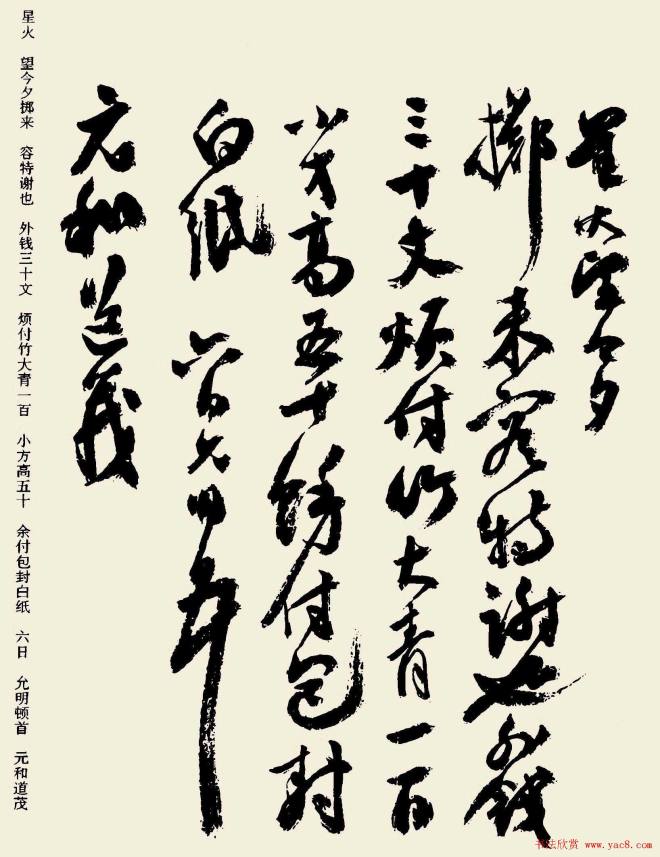 星火 望今夕
掷来 容特谢也 外钱
三十文 烦付竹大青一百
小方高五十 馀付包封
白纸 六日 允明顿首
元和道茂
星火 望今夕掷来 容特谢也 外钱三十文 烦付竹大青一百 小方高五十 余付包封白纸 六日 允明顿首 元和道茂
书法欣赏 www.yac8.com